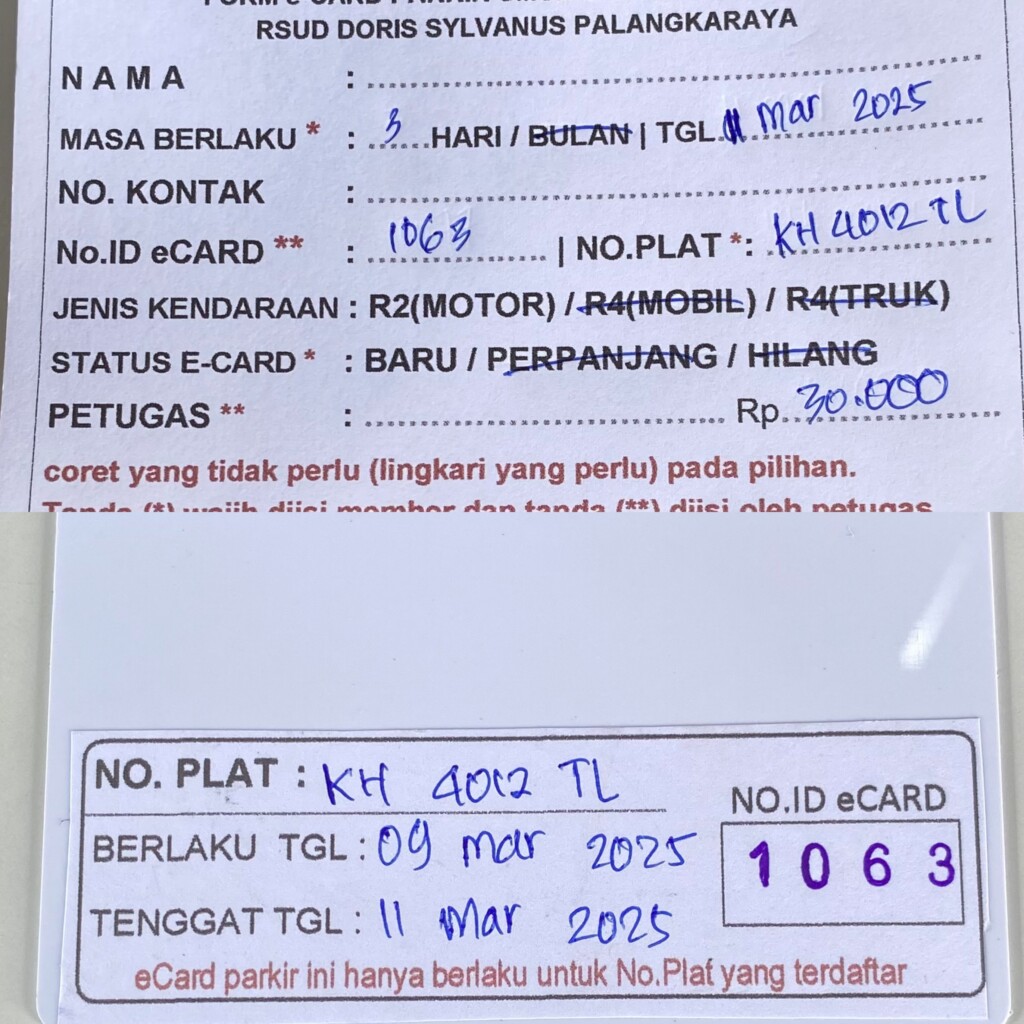 RSUD DORIS SYLVANUS PALANGKARAYA
NAMA :
MASA BERLAKU * : 3 HARI / BULAN | TGL. 11 Mar 2025
NO. KONTAK :
No.ID eCARD ** : 1063 | NO.PLAT *: KH 4012 TL
JENIS KENDARAAN : R2(MOTOR) / R4(MOBIL) / R4(TRUK)
STATUS E-CARD * : BARU / PERPANJANG / HILANG
PETUGAS ** : Rp. 30.000
coret yang tidak perlu (lingkari yang perlu) pada pilihan.
Tanda (*) wajib diisi member dan tanda (**) diisi oleh petugas
NO. PLAT : KH 4012 TL
BERLAKU TGL : 09 mar 2025
TENGGAT TGL : 11 Mar 2025
NO.ID eCARD
1063
eCard parkir ini hanya berlaku untuk No.Plat yang terdaftar